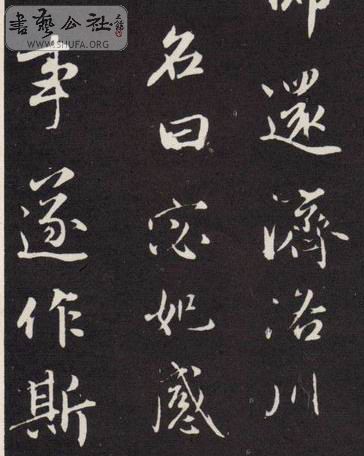 還濟洛川
名曰宓妃感
事遂作斯
書藝公社
WWW.SHUFA.ORG